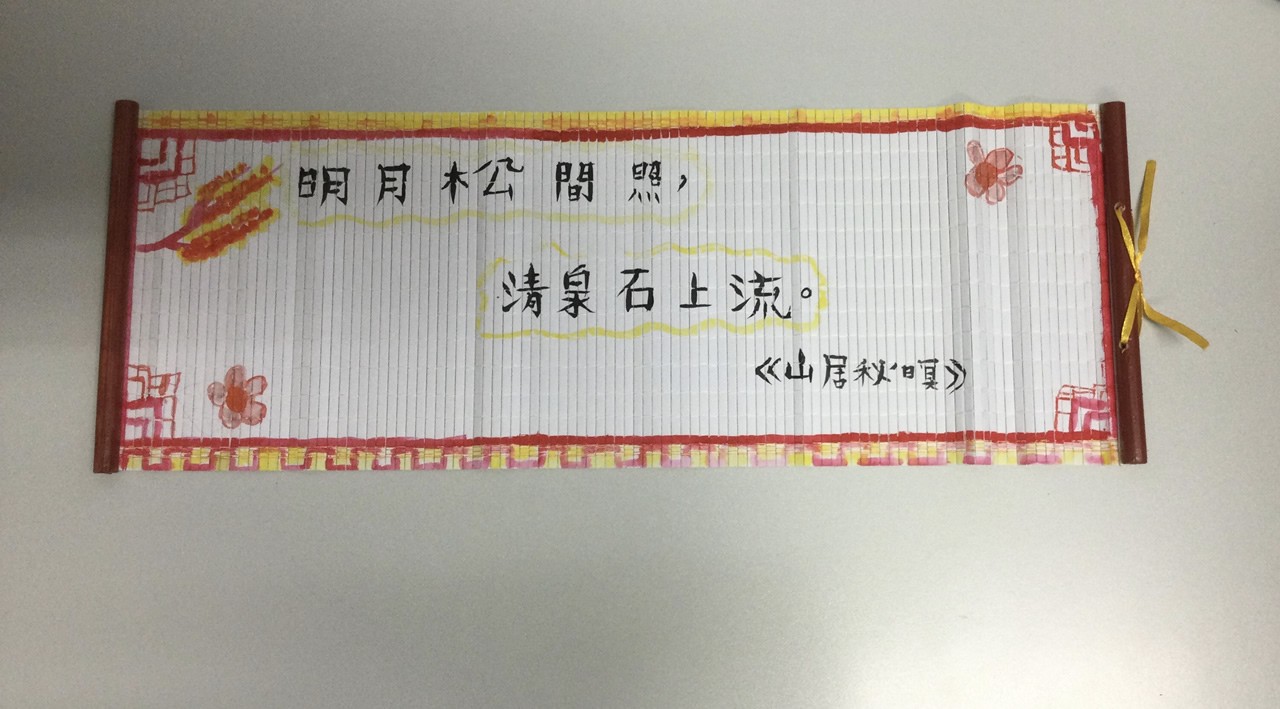 明月松間照，
清泉石上流。
《山居秋暝》